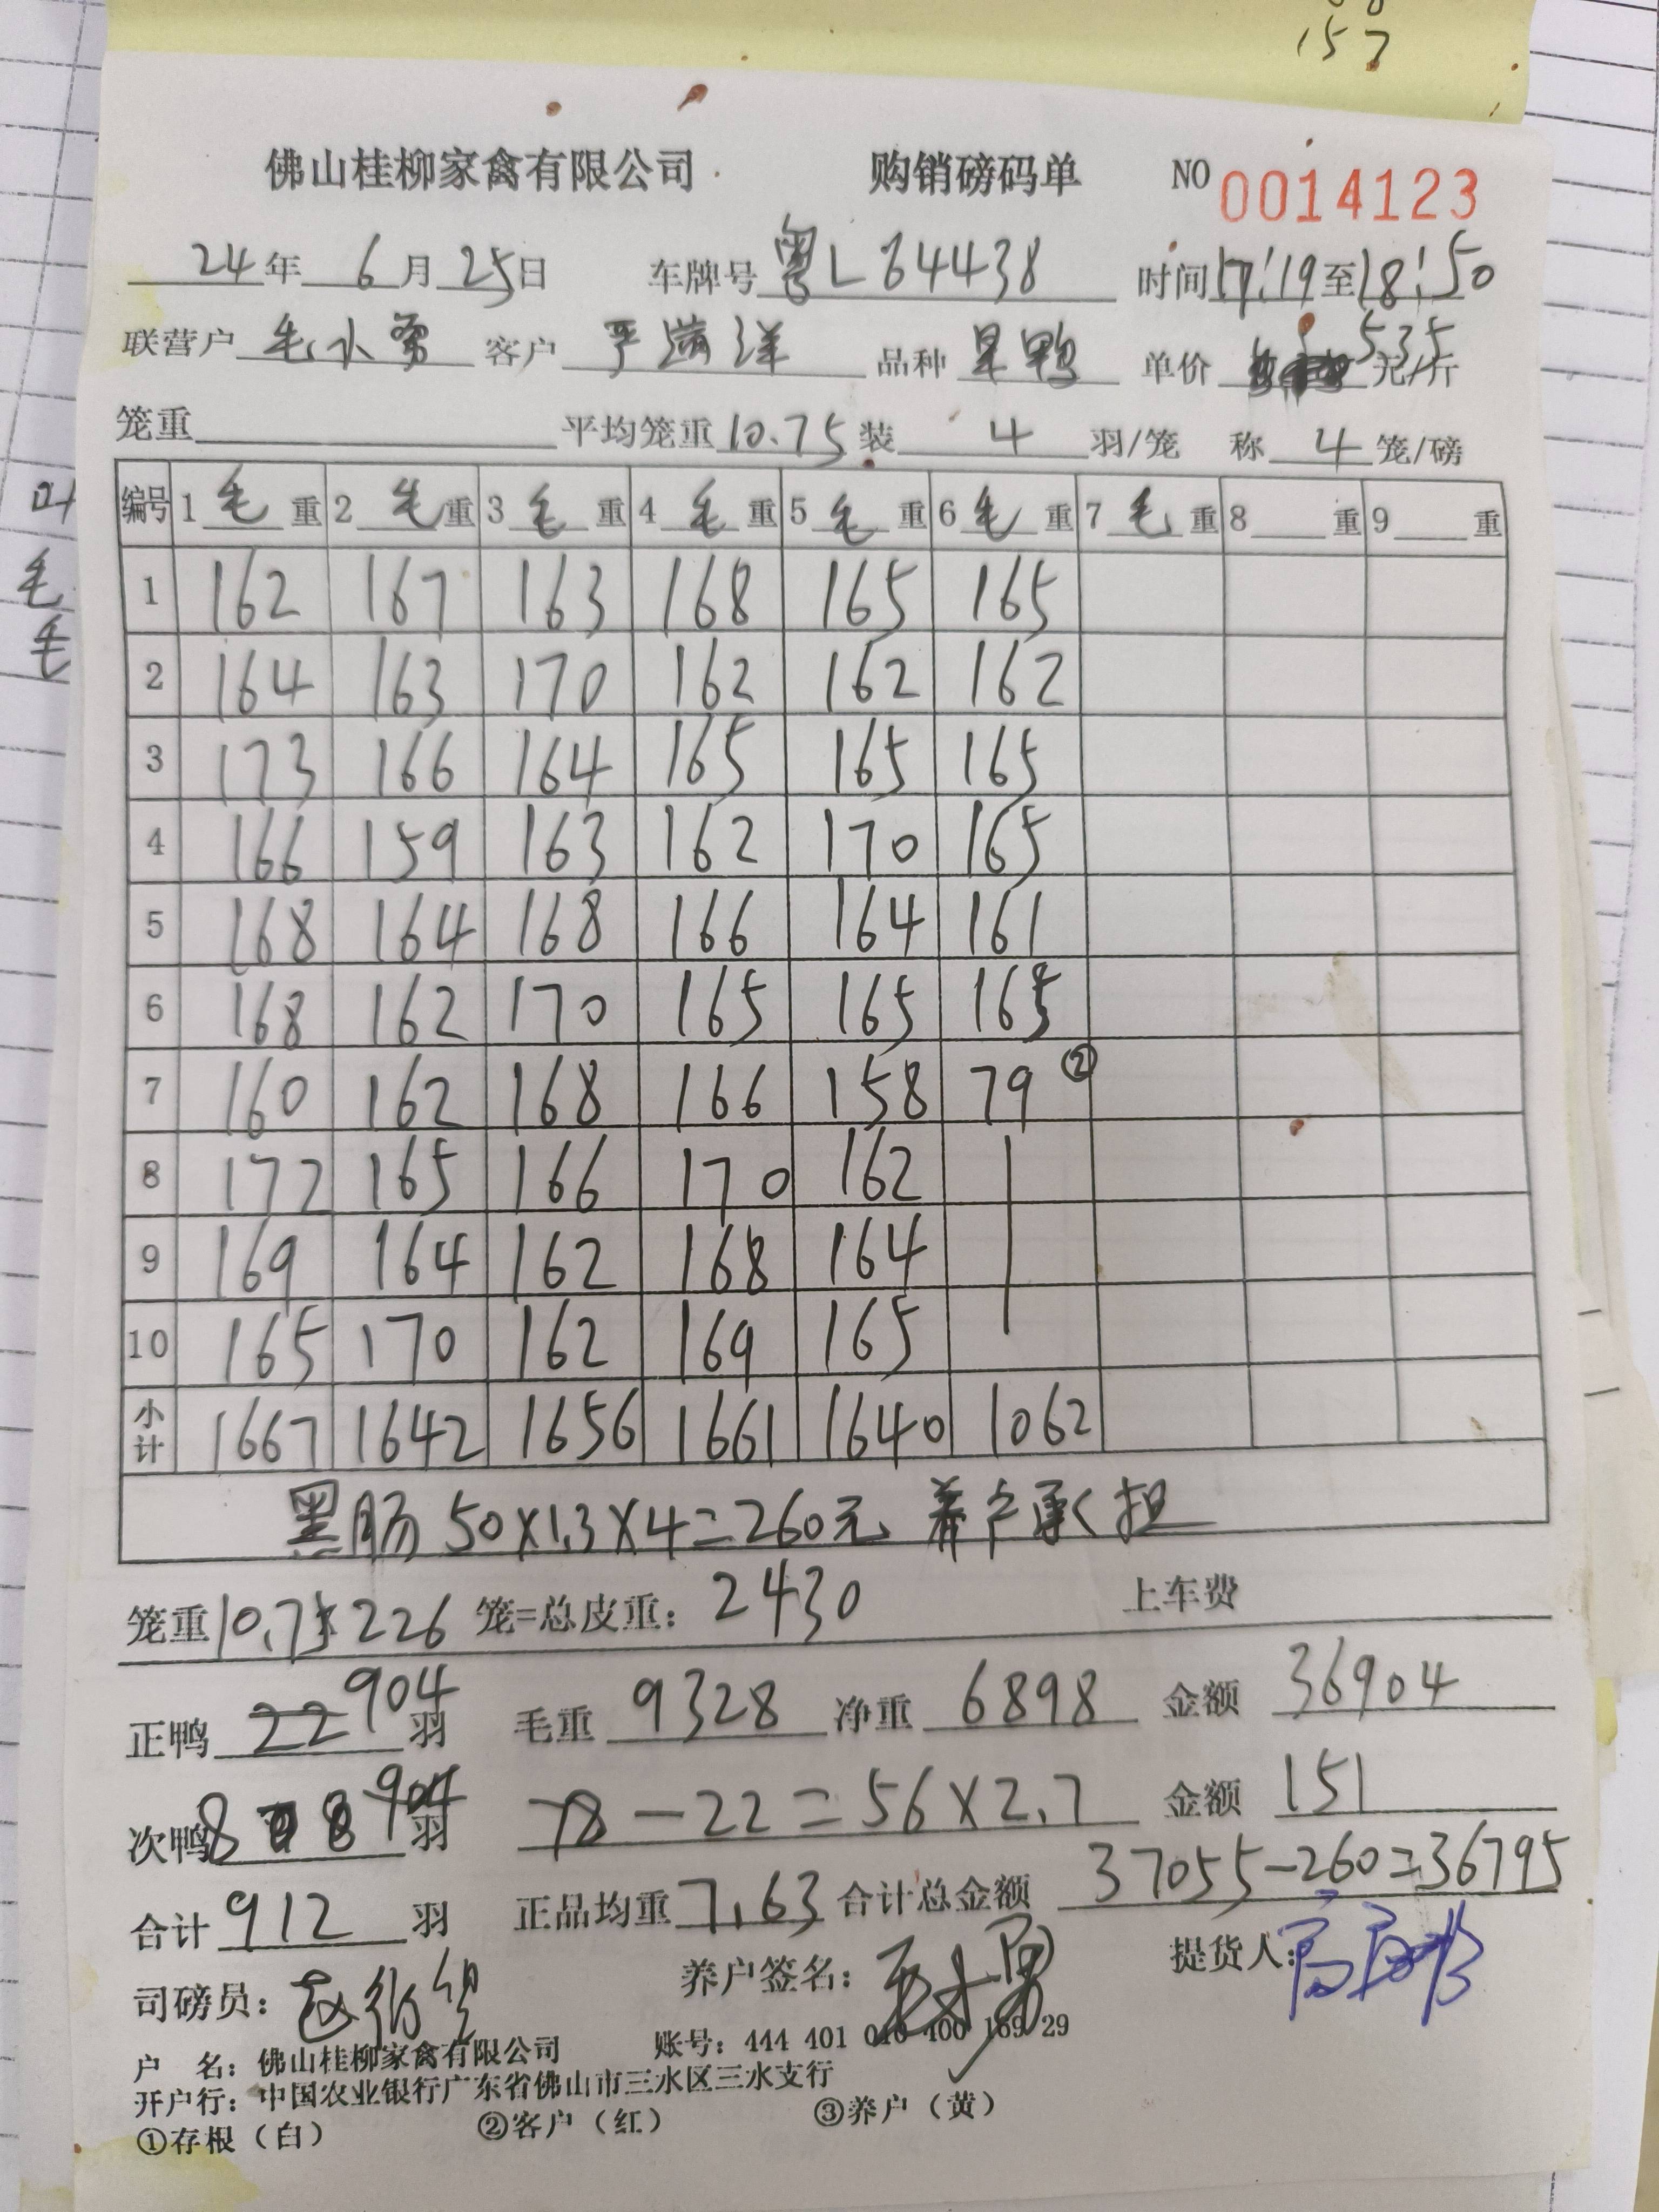 157
佛山桂柳家禽有限公司 购销磅码单 NO 0014123
24年 6月25日 车牌号 粤L64438 时间17:19至18:50
联营户 毛小勇 客户 严满洋 品种 单价 5.35 元/斤
笼重 平均笼重10.75装 4 羽/笼 称 4 笼/磅
编号 1 毛 重 2 毛 重 3 毛 重 4 毛 重 5 毛 重 6 毛 重 7 毛 重 8 重 9 重
1 162 167 163 168 165 165
2 164 163 170 162 162 162
3 173 166 164 165 165 165
4 166 159 163 162 170 165
5 168 164 168 166 164 161
6 168 162 170 165 165 165
7 160 162 168 166 158 79 ②
8 172 165 166 170 162
9 169 164 162 168 164
10 165 170 162 169 165
小计 1667 1642 1656 1661 1640 1062
黑肠 50×1.3×4=260元 养户承担
笼重10.75×226 笼=总皮重: 2430 上车费
正鸭 904 羽 毛重 9328 净重 6898 金额 36904
次鸭 8 羽 78-22=56×2.7 金额 151
合计 912 羽 正品均重 7.63 合计总金额 37055-260=36795
司磅员: 养户签名: 提货人:
户 名: 佛山桂柳家禽有限公司 账号: 444 401 010 400 169 29
开户行: 中国农业银行广东省佛山市三水区三水支行
①存根（白） ②客户（红） ③养户（黄）